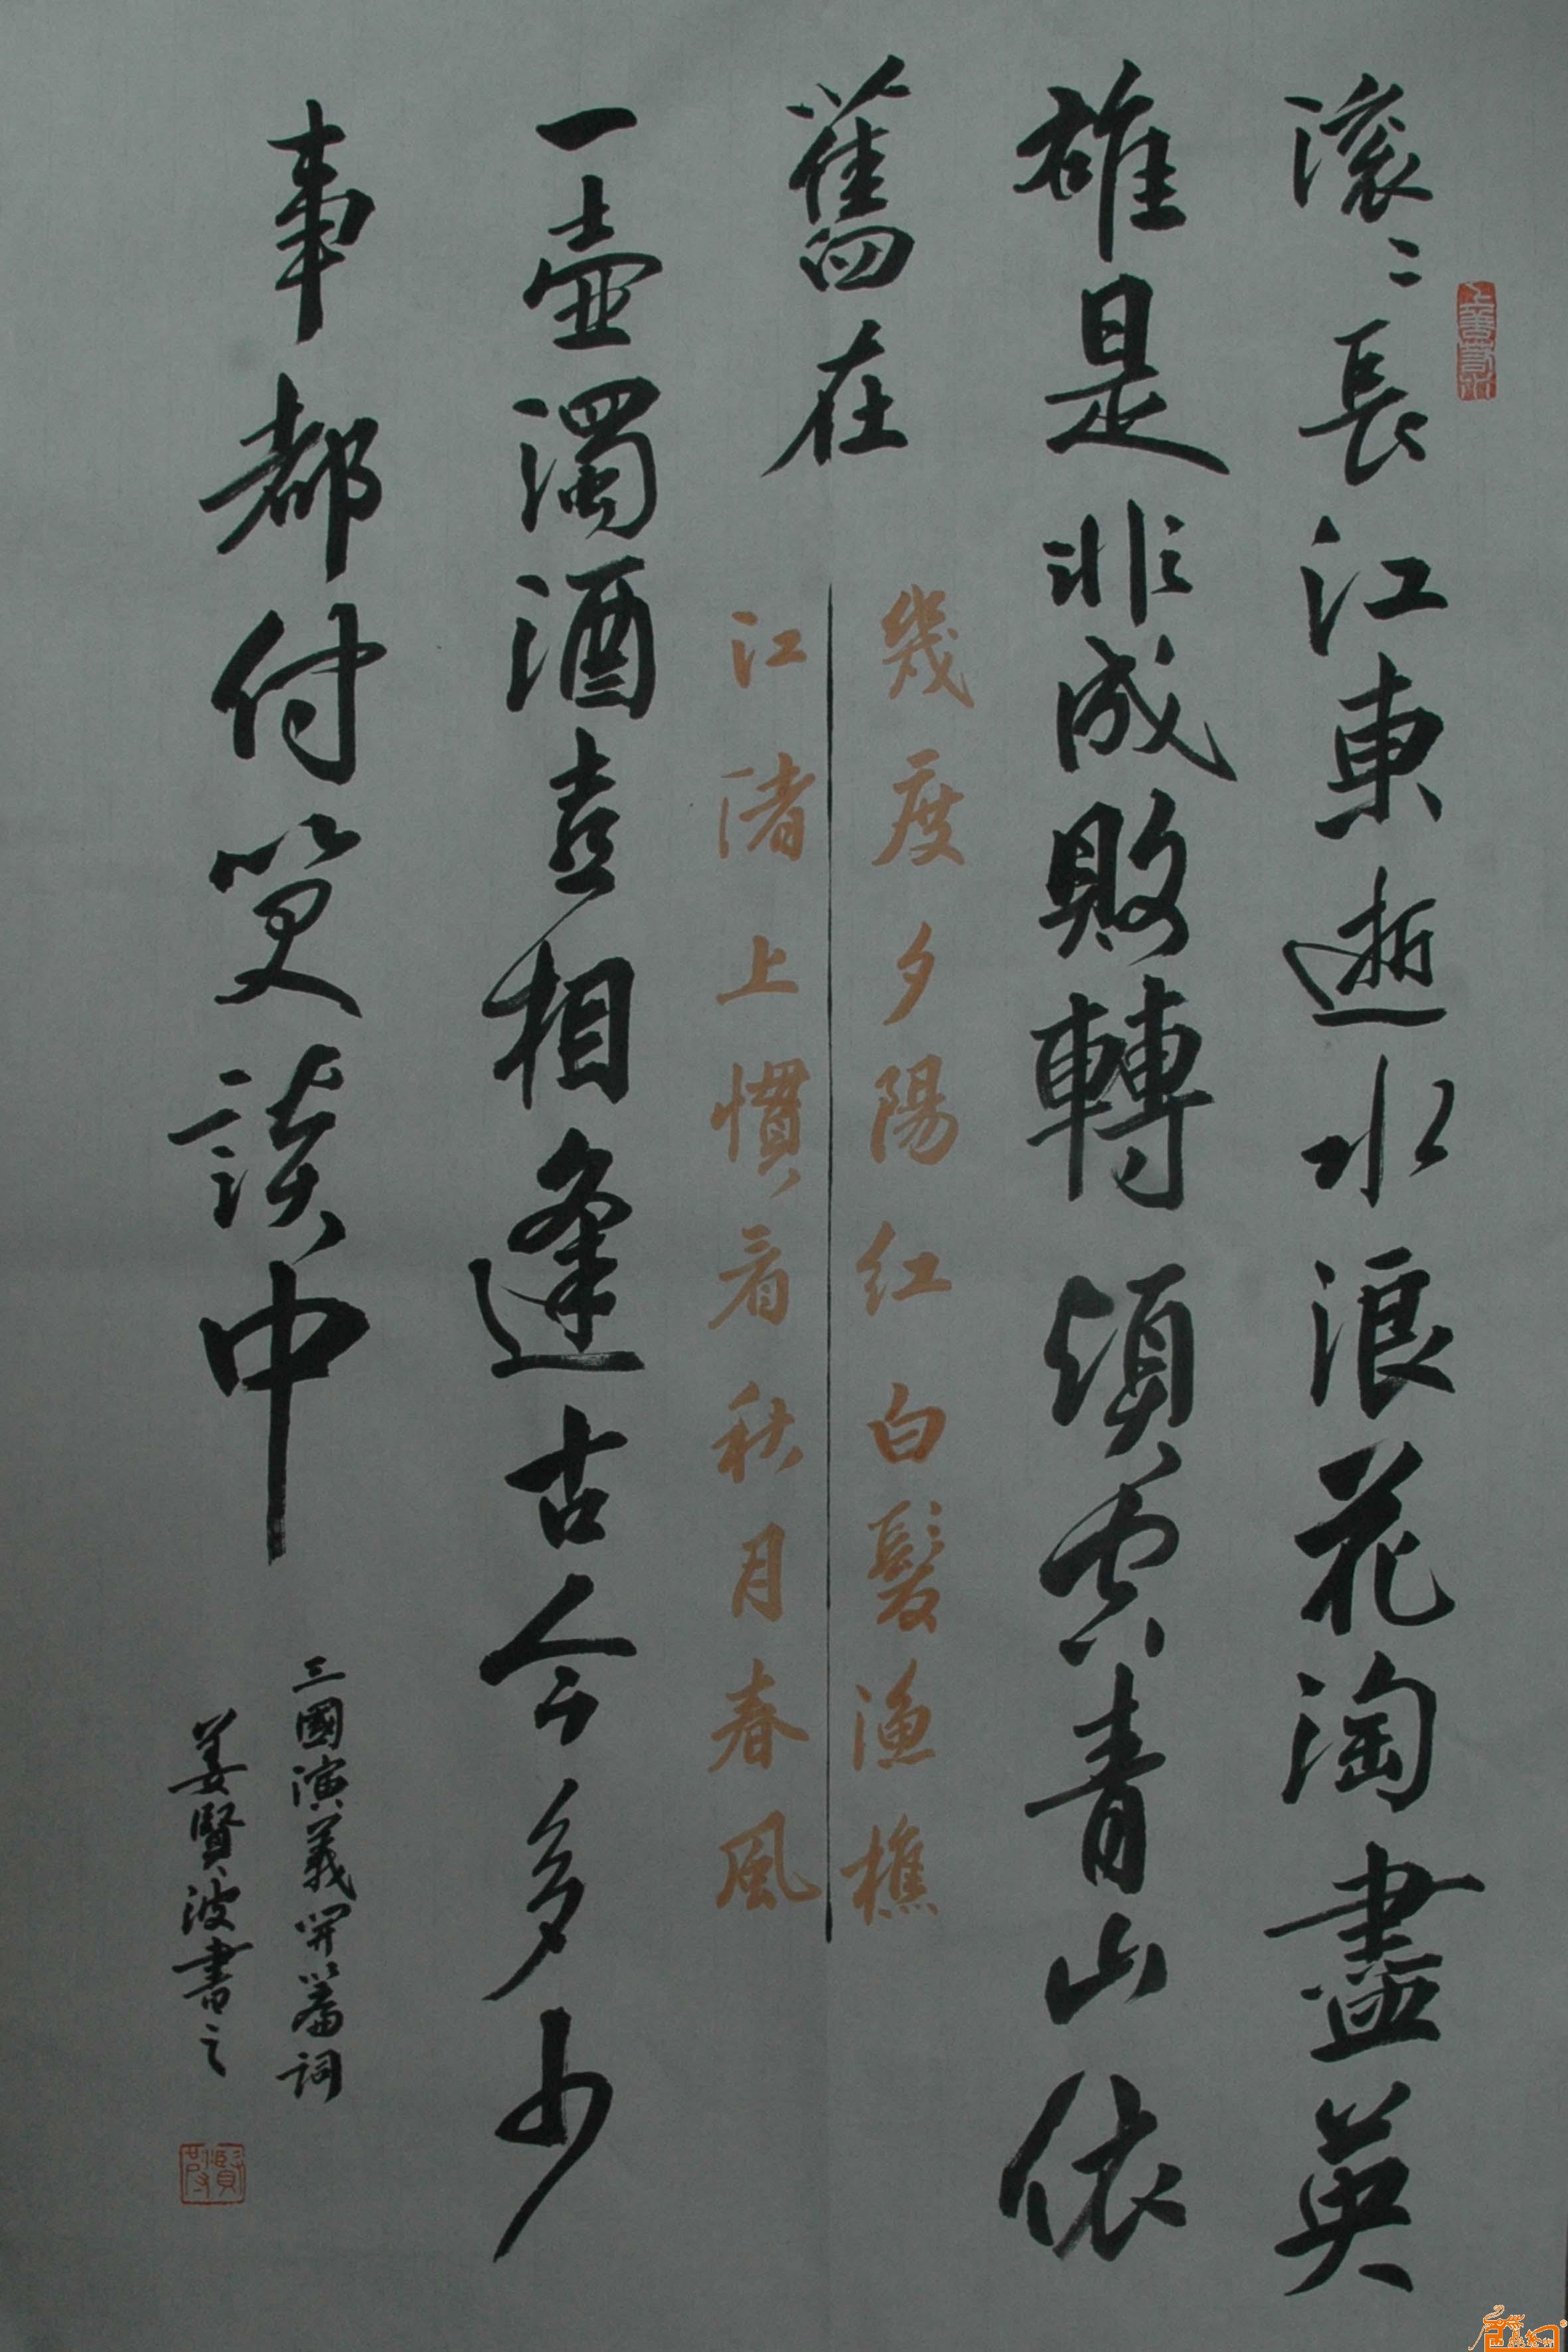 滚〻長江東逝水浪花淘盡英
雄是非成敗轉頭空青山依
舊在
幾度夕陽紅白髮漁樵
江渚上慣看秋月春風
一壺濁酒喜相逢古今多少
事都付笑談中
三國演義開篇詞
姜賢波書之
上善若水